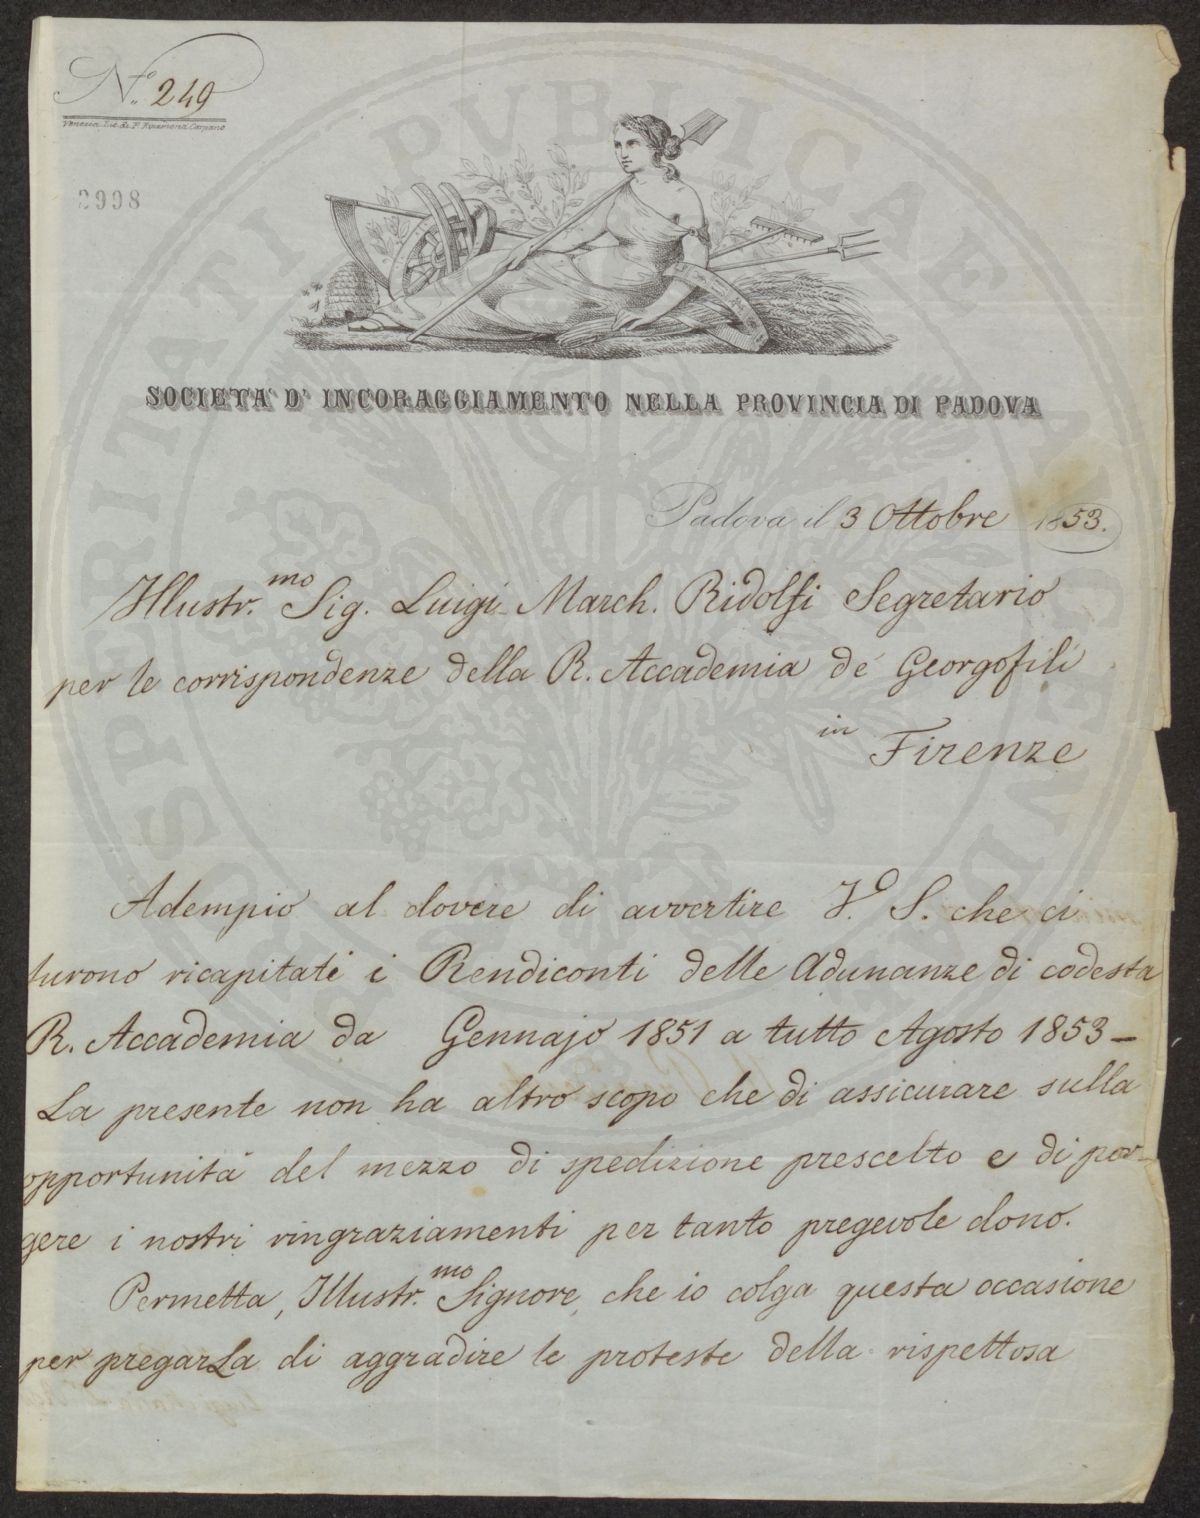 N.º 249
Venezia Lit. di P. Ripamonti Carpano
2998
SOCIETA' D' INCORAGGIAMENTO NELLA PROVINCIA DI PADOVA
Padova il 3 Ottobre 1853.
Illustr.mo Sig. Luigi March. Ridolfi Segretario
per le corrispondenze della R. Accademia de' Georgofili
in Firenze
Adempio al dovere di avvertire V.ª S. che ci
furono ricapitati i Rendiconti delle Adunanze di codesta
R. Accademia da Gennajo 1851 a tutto Agosto 1853 –
La presente non ha altro scopo che di assicurare sulla
opportunità del mezzo di spedizione prescelto e di por-
gere i nostri ringraziamenti per tanto pregevole dono.
Permetta, Illustr.mo Signore, che io colga questa occasione
per pregarLa di aggradire le proteste della rispettosa
PROSPERITATI PUBLICAE AUGENDAE